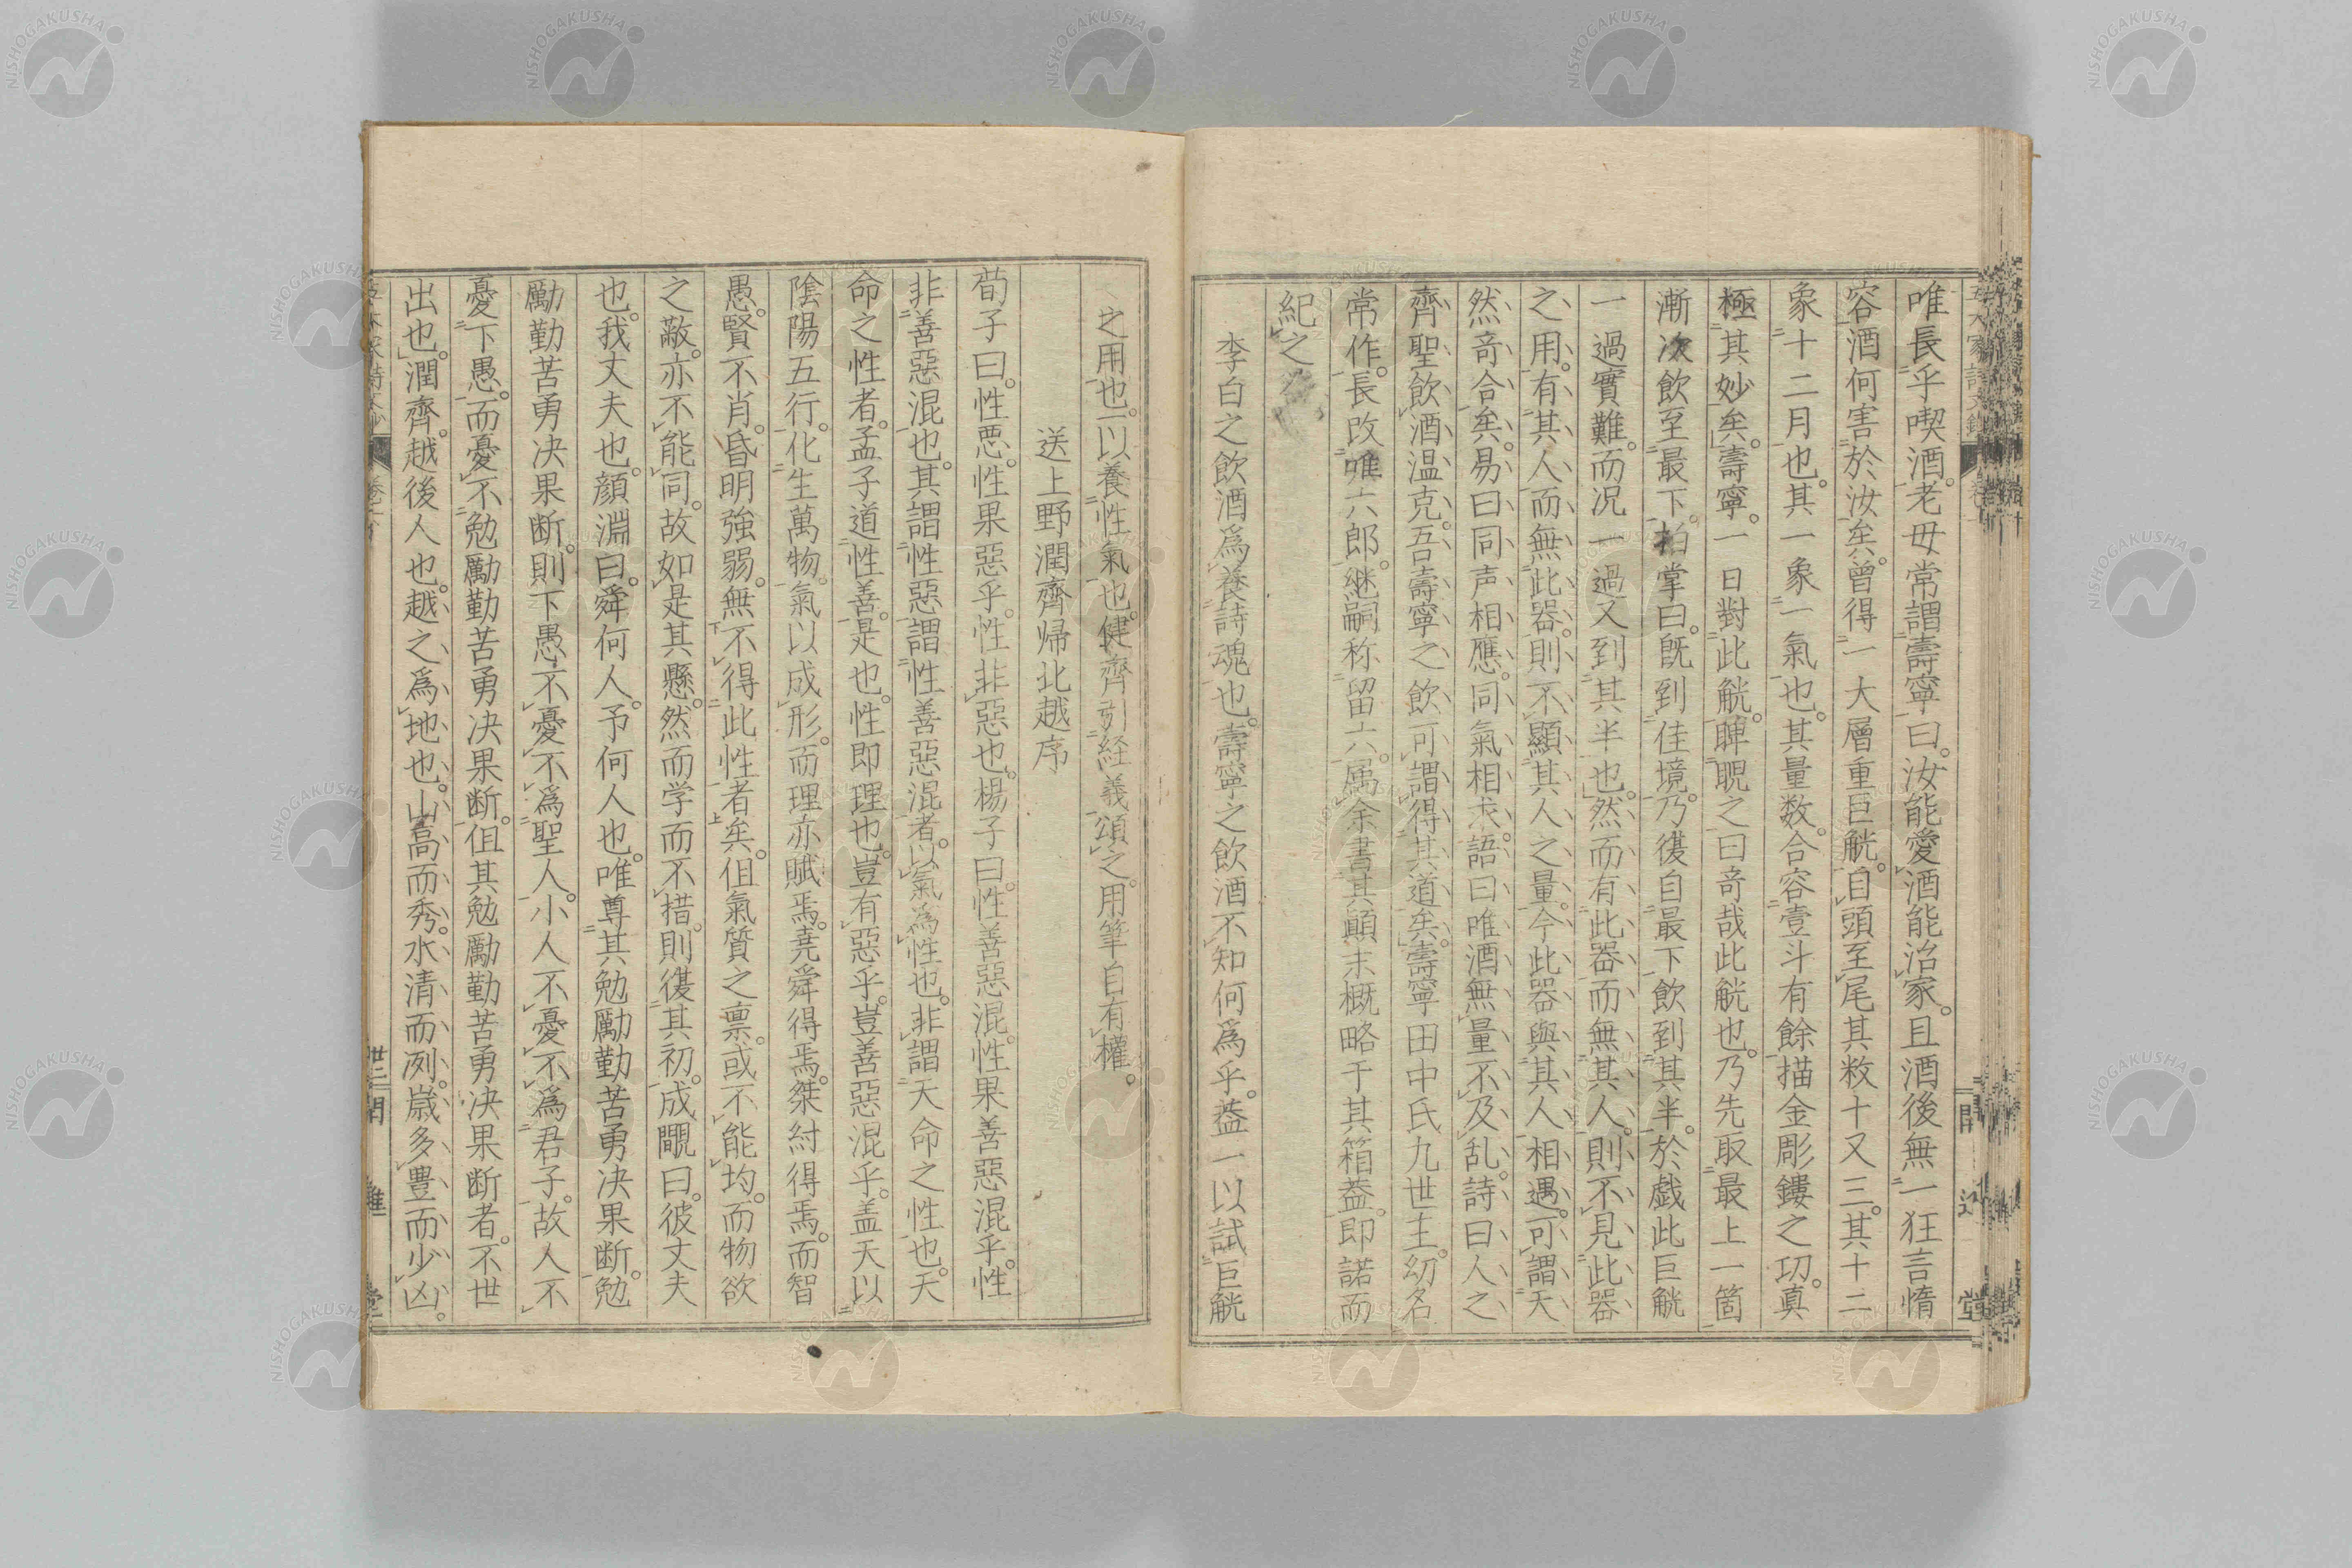 唯長乎喫酒。老母常謂壽寧曰。汝能愛酒能治家。且酒後無一狂言惰
容酒何害於汝矣。曽得一大層重巨觥。自頭至尾其数十又三。其十二
象十二月也。其一象一氣也。其量数。合容壹斗有餘描金彫鏤之㓛。真
極其妙矣。壽寧。一日對此觥。睥睨之曰奇哉此觥也。乃先取最上一箇
漸次飲至最下。拍掌曰。既到佳境。乃復自最下飲到其半。於戯此巨觥
一過實難。而况一過又到其半也。然而有此器而無其人。則不見此器
之用。有其人而無此器。則不顯其人之量。今此器與其人相遇。可謂天
然奇合矣。易曰同声相應。同氣相求。語曰唯酒無量不及乱。詩曰人之
齊聖飲酒温克。吾壽寧之飲可謂得其道矣。壽寧田中氏九世主。幼名
常作。長改唯六郎。継嗣称留六。属余書其顛末概略于其箱蓋。即諾而
紀之
李白之飲酒爲養詩魂也。壽寧之飲酒不知何爲乎。蓋一以試巨觥
之用也。一以養性氣也。健齊引経義頌之。用筆自有權。
送上野潤齊帰北越序
荀子曰。性悪。性果惡乎。性非惡也。楊子曰。性善惡混。性果善惡混乎。性
非善惡混也。其謂性惡謂性善惡混者。以氣爲性也。非謂天命之性也。天
命之性者。孟子道性善。是也。性即理也。豈有惡乎。豈善惡混乎。盖天以
陰陽五行。化生萬物。氣以成形。而理亦賦焉。堯舜得焉。桀紂得焉。而智
愚。賢不肖。昏明強弱。無不得此性者矣。伹氣質之稟。或不能均。而物欲
之蔽。亦不能同。故如是其懸。然而学而不措。則復其初。成覵曰。彼丈夫
也。我丈夫也。顔淵曰。舜何人。予何人也。唯尊其勉勵勤苦勇决果断。勉
勵勤苦勇决果断。則下愚不憂不爲聖人。小人不憂不爲君子。故人不
憂下愚。而憂不勉勵勤苦勇决果断。伹其勉勵勤苦勇决果断者。不世
出也。潤齊。越後人也。越之爲地也。山高而秀。水清而冽。歳多豊而少凶。